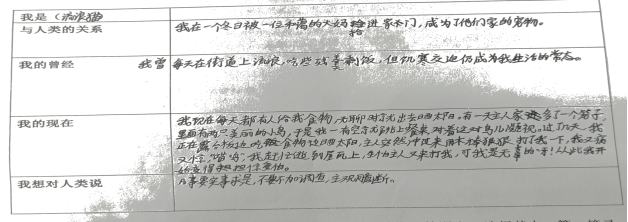 我是（流浪猫
与人类的关系 我在一个冬日被一位和蔼的大妈拾进家门，成为了他们家的宠物。
我的曾经 我曾每天在街道上流浪，吃些残羹剩饭，但饥寒交迫仍成为我生活的常态。
我的现在 我现在每天都有人给我食物，无聊时就出去晒太阳。有一天主人家多了一个笼子，
里面有两只美丽的小鸟，于是我一有空就跳上餐桌对着这对鸟儿凝视。过了几天，我
正在露台边吃食物边晒太阳，主人突然冲过来用木棒狠狠打了我一下，我又痛
又惊，"喵呜"我赶忙逃到屋瓦上，生怕主人又来打我，可我是无辜的呀！从此我开
始变得
我想对人类说 凡事要实事求是，不要不加调查，主观臆断。